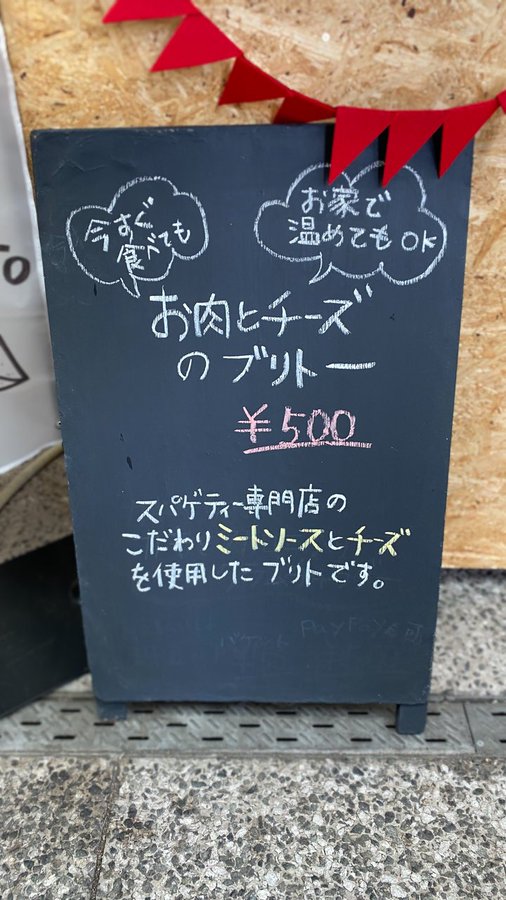 今すぐ
食べても
お家で
温めてもOK
お肉とチーズ
のブリトー
¥500
スパゲティー専門店の
こだわりミートソースとチーズ
を使用したブリトです。
PayPay可
TO